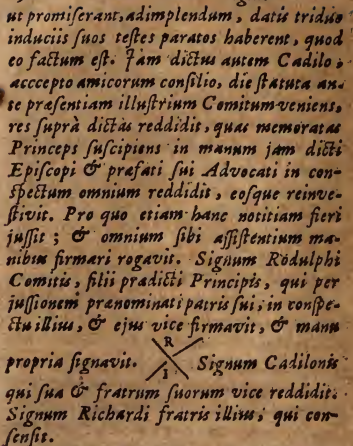 ut promiserant, adimplendum, datis triduo
induciis suos testes paratos haberent, quod
eo factum est. Jam dictus autem Cadilo,
acccepto amicorum consilio, die statuta an-
te præsentiam illustrium Comitum veniens,
res suprà dictas reddidit, quas memoratus
Princeps suscipiens in manum jam dicti
Episcopi & præfati sui Advocati in con-
spectum omnium reddidit, eosque reinve-
stivit. Pro quo etiam hanc notitiam fieri
jussit; & omnium sibi assistentium ma-
nibus firmari rogavit. Signum Rodulphi
Comitis, filii prædicti Principis, qui per
jussionem prænominati patris sui, in conspe-
ctu illius, & ejus vice firmavit, & manu
R
propria signavit. Signum Cadilonis
I
qui sua & fratrum suorum vice reddidit.
Signum Richardi fratris illius, qui con-
sensit.